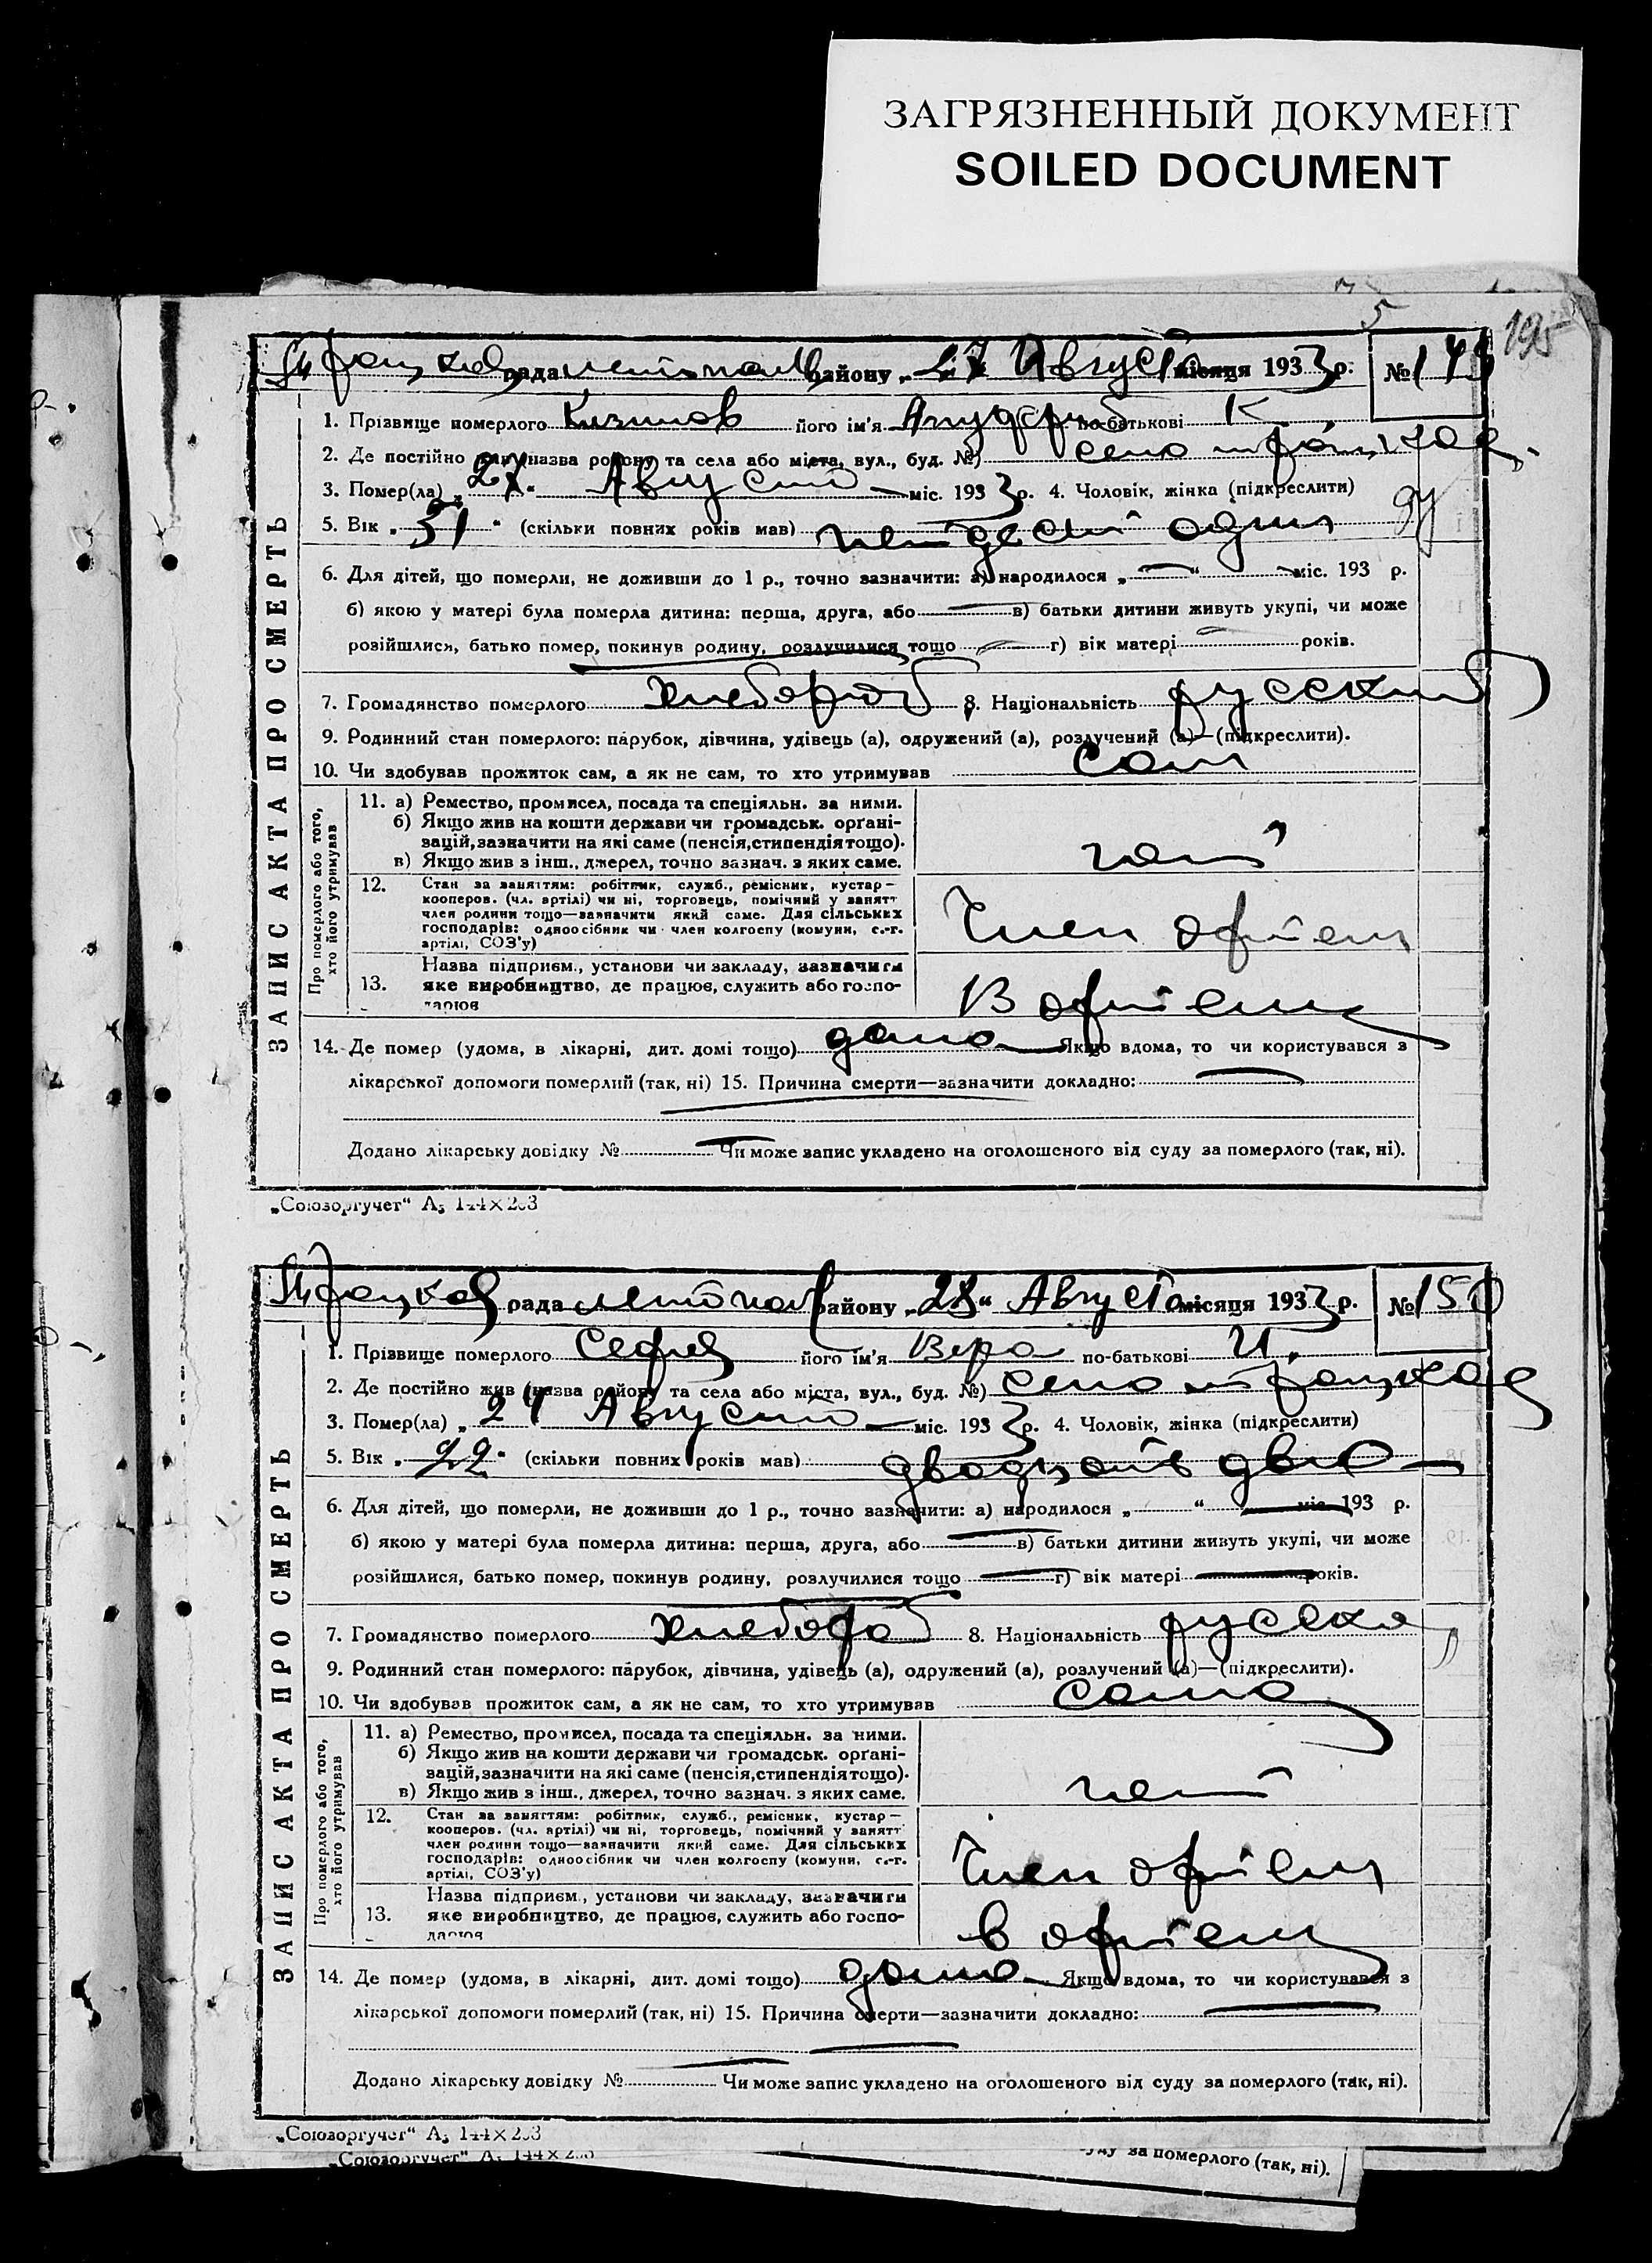 ЗАГРЯЗНЕННЫЙ ДОКУМЕНТ
SOILED DOCUMENT
5
195
рада району „27 Август місяця 1933 р. № 149
1. Прізвище померлого його ім'я по-батькові К
2. Де постійно жив (назва району та села або міста, вул., буд. №) село
3. Помер(ла) „27“ Август міс. 1933 р. 4. Чоловік, жінка (підкреслити)
5. Вік „51“ (скільки повних років мав) один
6. Для дітей, що померли, не доживши до 1 р., точно зазначити: а) народилося „—“ міс. 193 р.
б) якою у матері була померла дитина: перша, друга, або — в) батьки дитини живуть укупі, чи може
розійшлися, батько помер, покинув родину, розлучилися тощо — г) вік матері — років.
7. Громадянство померлого хлебороб 8. Національність русский
9. Родинний стан померлого: парубок, дівчина, удівець (а), одружений (а), розлучений (а)—(підкреслити).
10. Чи здобував прожиток сам, а як не сам, то хто утримував сам
ЗАПИС АКТА ПРО СМЕРТЬ
Про померлого або того, хто його утримував
11. а) Ремество, промисел, посада та спеціяльн. за ними.
б) Якщо жив на кошти держави чи громадськ. орґані-
зацій, зазначити на які саме (пенсія, стипендія тощо).
в) Якщо жив з інш., джерел, точно зазнач. з яких саме.
нет
12. Стан за заняттям: робітник, служб., ремісник, кустар—
кооперов. (чл. артілі) чи ні, торговець, помічний у занятт
член родини тощо—зазначити який саме. Для сільських
господарів: одноосібник чи член колгоспу (комуни, с.-г.
артілі, СОЗ'у)
Член артели
13. Назва підприєм., установи чи закладу, зазначити
яке виробництво, де працює, служить або госпо-
дарює
В артели
14. Де помер (удома, в лікарні, дит. домі тощо) дома Якщо вдома, то чи користувався з
лікарської допомоги померлий (так, ні) 15. Причина смерти—зазначити докладно: —
Додано лікарську довідку № — Чи може запис укладено на оголошеного від суду за померлого (так, ні).
„Союзоргучет“ А5 144×203
рада району „28“ Август місяця 1933 р. № 150
1. Прізвище померлого його ім'я Вера по-батькові И.
2. Де постійно жив (назва району та села або міста, вул., буд. №) село
3. Помер(ла) „27 Август міс. 1933 р. 4. Чоловік, жінка (підкреслити)
5. Вік „22“ (скільки повних років мав) двадцать два
6. Для дітей, що померли, не доживши до 1 р., точно зазначити: а) народилося „ “ міс. 193 р.
б) якою у матері була померла дитина: перша, друга, або — в) батьки дитини живуть укупі, чи може
розійшлися, батько помер, покинув родину, розлучилися тощо — г) вік матері — років.
7. Громадянство померлого хлебороб 8. Національність русская
9. Родинний стан померлого: парубок, дівчина, удівець (а), одружений (а), розлучений (а)—(підкреслити).
10. Чи здобував прожиток сам, а як не сам, то хто утримував сама
ЗАПИС АКТА ПРО СМЕРТЬ
Про померлого або того, хто його утримував
11. а) Ремество, промисел, посада та спеціяльн. за ними.
б) Якщо жив на кошти держави чи громадськ. орґані-
зацій, зазначити на які саме (пенсія, стипендія тощо).
в) Якщо жив з інш., джерел, точно зазнач. з яких саме.
нет
12. Стан за заняттям: робітник, служб., ремісник, кустар—
кооперов. (чл. артілі) чи ні, торговець, помічний у занятт
член родини тощо—зазначити який саме. Для сільських
господарів: одноосібник чи член колгоспу (комуни, с.-г.
артілі, СОЗ'у)
Член артели
13. Назва підприєм., установи чи закладу, зазначити
яке виробництво, де працює, служить або госпо-
дарює
в артели
14. Де помер (удома, в лікарні, дит. домі тощо) дома Якщо вдома, то чи користувався з
лікарської допомоги померлий (так, ні) 15. Причина смерти—зазначити докладно: —
Додано лікарську довідку № — Чи може запис укладено на оголошеного від суду за померлого (так, ні).
„Союзоргучет“ А5 144×203
„Союзоргучет“ А5 144×203
суду за померлого (так, ні).